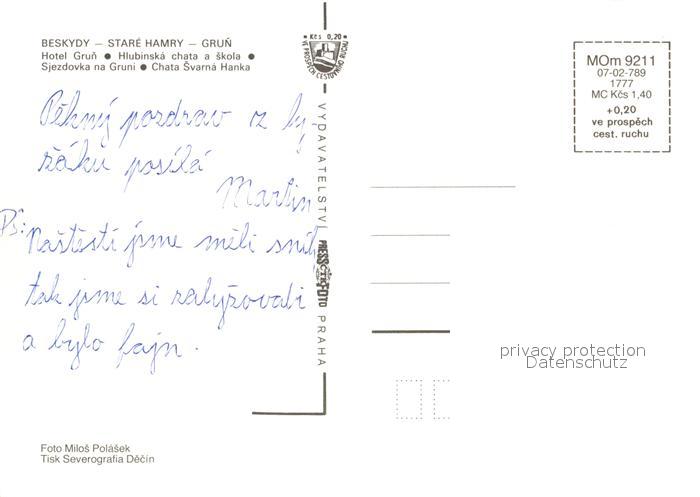 BESKYDY – STARÉ HAMRY – GRUŇ
Hotel Gruň ● Hlubinská chata a škola ●
Sjezdovka na Gruni ● Chata Švarná Hanka
Pěkný pozdrav z ly-
žáku posílá
Martin
PS: Naštěstí jsme měli sníh,
tak jsme si zalyžovali
a bylo fajn.
Foto Miloš Polášek
Tisk Severografia Děčín
Kčs 0,20
VE PROSPĚCH CESTOVNÍHO RUCHU
VYDAVATELSTVÍ PRESSFOTO PRAHA
MOm 9211
07-02-789
1777
MC Kčs 1,40
+0,20
ve prospěch
cest. ruchu
privacy protection
Datenschutz